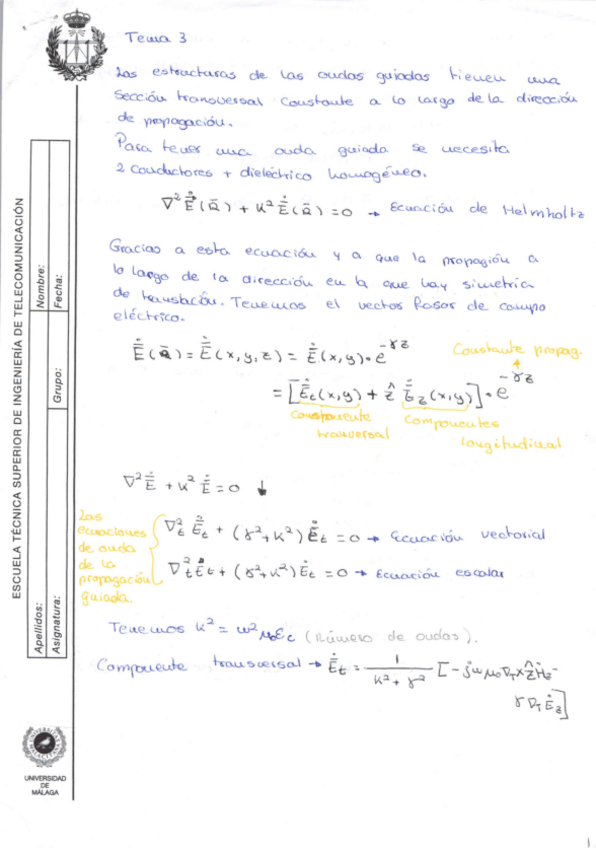 Tema 3
Las estructuras de las ondas guiadas tienen una
sección transversal constante a lo largo de la dirección
de propagación.
Para tener una onda guiada se necesita
2 conductores + dieléctrico homogéneo.
∇² Ē(R̄) + K² Ē(R̄) = 0 → Ecuación de Helmholtz
Gracias a esta ecuación y a que la propagión a
lo largo de la dirección en la que hay simetría
de translación. Tenemos el vector fasor de campo
eléctrico.
Ē(R̄) = Ē(x,y,z) = Ē(x,y)·e^-γz
Constante propag.
= [Ēt(x,y) + ẑ Ēz(x,y)]·e^-γz
Componente transversal
Componentes longitudinal
∇²Ē + K²Ē = 0 ↓
Las ecuaciones de onda de la propagación guiada.
∇t² Ēt + (γ²+K²) Ēt = 0 → Ecuación vectorial
∇t² Ėt + (γ²+K²) Ėt = 0 → Ecuación escalar
Tenemos K² = ω²μ₀εc (Número de ondas).
Componente transversal → Ēt = 1/(K²+γ²) [-jωμ₀∇T×ẑḢz-
γ∇TĖz]
ESCUELA TÉCNICA SUPERIOR DE INGENIERÍA DE TELECOMUNICACIÓN
Apellidos:
Nombre:
Asignatura:
Grupo:
Fecha:
UNIVERSIDAD
DE
MÁLAGA
1